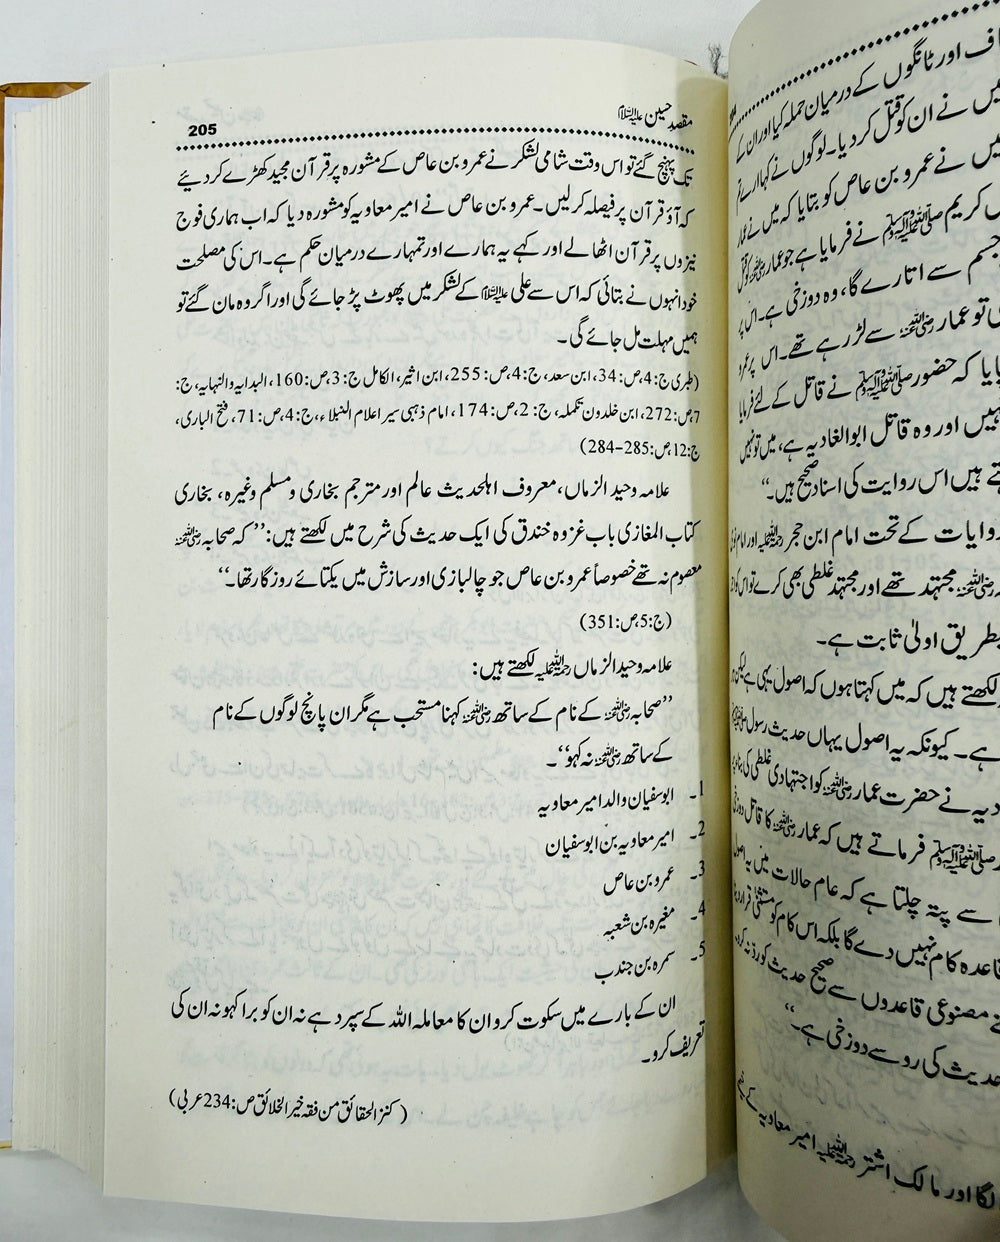 مقصد حسین علیہ السلام
205
تک پہنچ گئے تو اس وقت شامی لشکر نے عمرو بن عاص کے مشورہ پر قرآن مجید کھڑے کر دیئے
کہ آؤ قرآن پر فیصلہ کر لیں۔ عمرو بن عاص نے امیر معاویہ کو مشورہ دیا کہ اب ہماری فوج
نیزوں پر قرآن اٹھا لے اور کہے یہ ہمارے اور تمہارے درمیان حکم ہے۔ اس کی مصلحت
خود انہوں نے بتائی کہ اس سے علی علیہ السلام کے لشکر میں پھوٹ پڑ جائے گی اور اگر وہ مان گئے تو
ہمیں مہلت مل جائے گی۔
(طبری ج:4،ص:34، ابن سعد، ج:4،ص:255، ابن اثیر، الکامل ج:3،ص:160، البدایہ والنہایہ، ج:
7،ص:272، ابن خلدون تکملہ، ج:2،ص:174، امام ذہبی سیر اعلام النبلاء، ج:4،ص:71، فتح الباری،
ج:12،ص:285-284)
علامہ وحید الزماں، معروف اہلحدیث عالم اور مترجم بخاری و مسلم وغیرہ، بخاری
کتاب المغازی باب غزوہ خندق کی ایک حدیث کی شرح میں لکھتے ہیں:’’کہ صحابہ رضی اللہ عنہم
معصوم نہ تھے خصوصاً عمرو بن عاص جو چالبازی اور سازش میں یکتائے روزگار تھا۔‘‘
(ج:5،ص:351)
علامہ وحید الزماں رحمۃ اللہ علیہ لکھتے ہیں:
’’صحابہ رضی اللہ عنہم کے نام کے ساتھ رضی اللہ عنہ کہنا مستحب ہے مگر ان پانچ لوگوں کے نام
کے ساتھ رضی اللہ عنہ نہ کہو‘‘۔
1۔ ابوسفیان والد امیر معاویہ
2۔ امیر معاویہ بن ابوسفیان
3۔ عمرو بن عاص
4۔ مغیرہ بن شعبہ
5۔ سمرہ بن جندب
ان کے بارے میں سکوت کرو ان کا معاملہ اللہ کے سپرد ہے نہ ان کو برا کہو نہ ان کی
تعریف کرو۔
(کنز الحقائق من فقہ خیر الخلائق ص:234 عربی)
اور ٹانگوں کے درمیان حملہ کیا اور ان کے
نے ان کو قتل کر دیا۔ لوگوں نے کہا ارے تم
نے عمرو بن عاص کو بتایا کہ میں نے عمار
کریم صلی اللہ علیہ وسلم نے فرمایا ہے جو عمار رضی اللہ عنہ کو قتل
جسم سے اتارے گا، وہ دوزخی ہے۔ اس پر
تو عمار رضی اللہ عنہ سے لڑ رہے تھے۔ اس پر عمرو
کہ حضور صلی اللہ علیہ وسلم نے قاتل کے لئے فرمایا
اور وہ قاتل ابو الغادیہ ہے، میں تو نہیں
ہیں اس روایت کی اسناد صحیح ہیں۔‘‘
کے تحت امام ابن حجر رحمۃ اللہ علیہ اور امام
رضی اللہ عنہ مجتہد تھے اور مجتہد غلطی بھی کرے تو اس کو
بطریق اولیٰ ثابت ہے۔
لکھتے ہیں کہ میں کہتا ہوں کہ اصول یہی ہے لیکن
ہے۔ کیونکہ یہ اصول یہاں حدیث رسول صلی اللہ علیہ وسلم
نے حضرت عمار رضی اللہ عنہ کو اجتہادی غلطی کی بنا پر
صلی اللہ علیہ وسلم فرماتے ہیں کہ عمار رضی اللہ عنہ کا قاتل دوزخی
سے پتہ چلتا ہے کہ عام حالات میں یہ اصول
قاعدہ کام نہیں دے گا بلکہ اس کام کو مستثنیٰ قرار
مصنوعی قاعدوں سے صحیح حدیث کو رد نہ کرو
حدیث کی رو سے دوزخی ہے۔‘‘
اور مالک اشتر رحمۃ اللہ علیہ امیر معاویہ کے